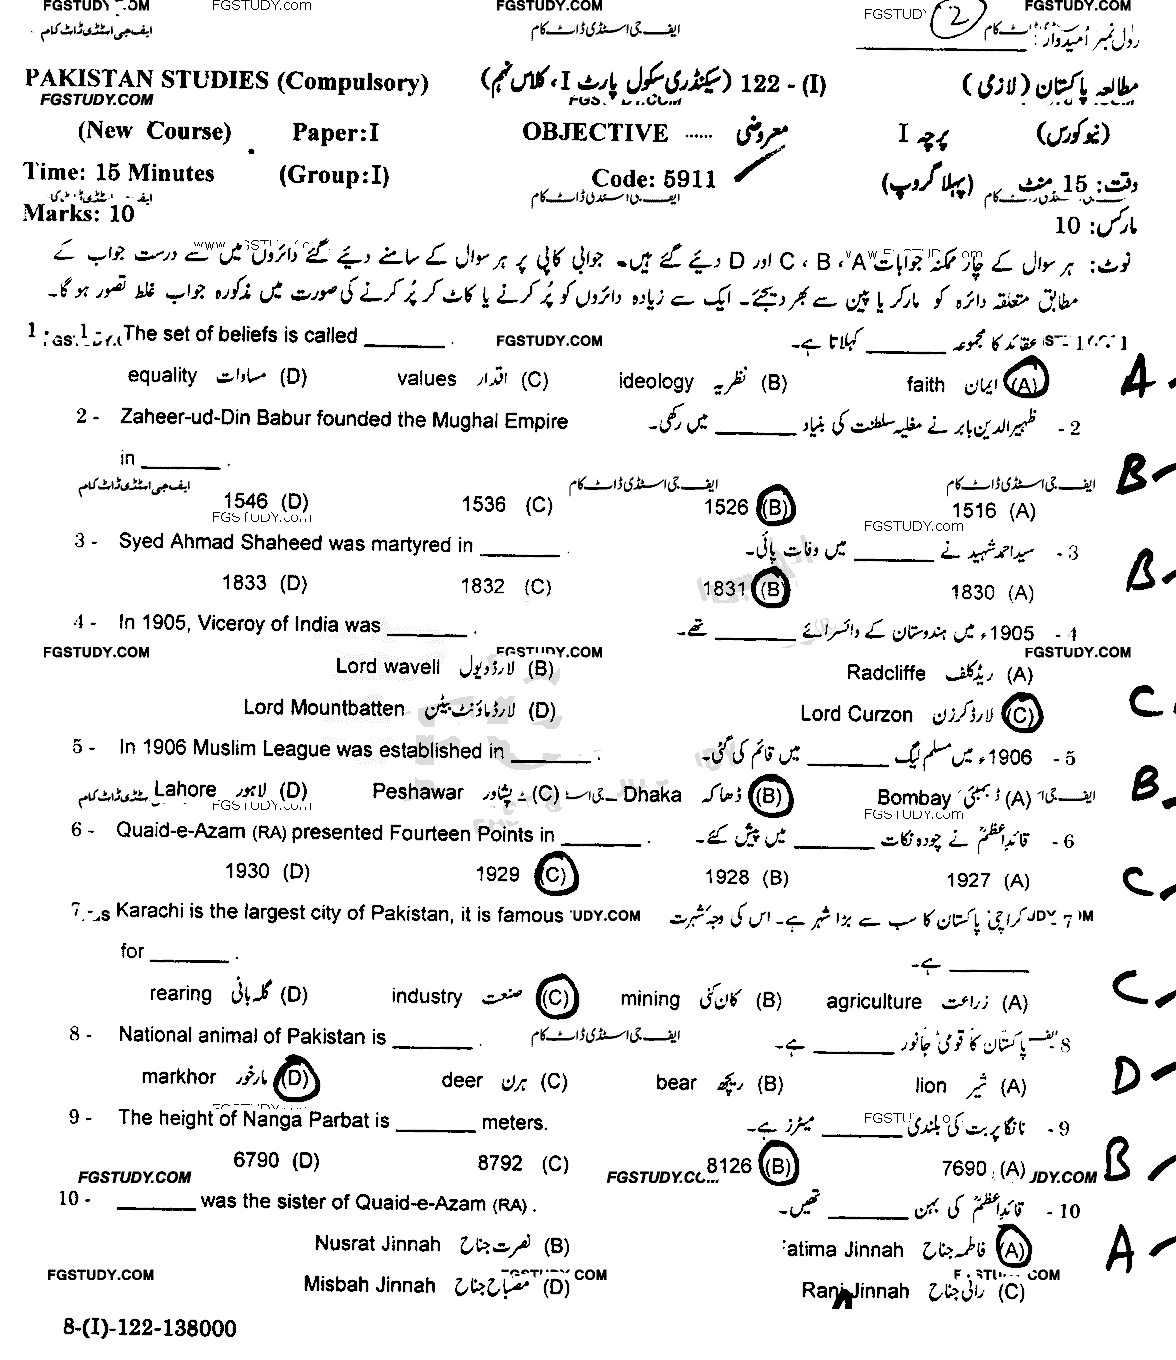 FGSTUDY.COM FGSTUDY.com FGSTUDY.COM FGSTUDY.COM
ایف جی اسٹڈی ڈاٹ کام ایف جی اسٹڈی ڈاٹ کام
2
رول نمبر اُمیدوار:
PAKISTAN STUDIES (Compulsory) 122 - (I) (سیکنڈری سکول پارٹ I، کلاس نہم) مطالعہ پاکستان (لازمی)
FGSTUDY.COM
(New Course) Paper:I OBJECTIVE ...... معروضی پرچہ I (نیو کورس)
Time: 15 Minutes (Group:I) Code: 5911 (پہلا گروپ) وقت: 15 منٹ
ایف جی اسٹڈی ڈاٹ کام
Marks: 10 مارکس: 10
نوٹ: ہر سوال کے چار ممکنہ جوابات A، B، C اور D دیئے گئے ہیں۔ جوابی کاپی پر ہر سوال کے سامنے دیئے گئے دائروں میں سے درست جواب کے
مطابق متعلقہ دائرہ کو مارکر یا پین سے بھر دیجئے۔ ایک سے زیادہ دائروں کو پُر کرنے یا کاٹ کر پُر کرنے کی صورت میں مذکورہ جواب غلط تصور ہو گا۔
1 The set of beliefs is called ________ . FGSTUDY.COM عقائد کا مجموعہ ________ کہلاتا ہے۔
equality مساوات (D) values اقدار (C) ideology نظریہ (B) faith ایمان (A) A
2 - Zaheer-ud-Din Babur founded the Mughal Empire ظہیرالدین بابر نے مغلیہ سلطنت کی بنیاد ________ میں رکھی۔ - 2
in ________ . B
ایف جی اسٹڈی ڈاٹ کام ایف جی اسٹڈی ڈاٹ کام ایف جی اسٹڈی ڈاٹ کام
1546 (D) 1536 (C) 1526 (B) 1516 (A)
FGSTUDY.com FGSTUDY.com
3 - Syed Ahmad Shaheed was martyred in ________ . سید احمد شہید نے ________ میں وفات پائی۔ - 3
1833 (D) 1832 (C) 1831 (B) 1830 (A) B
4 - In 1905, Viceroy of India was ________ . 1905ء میں ہندوستان کے وائسرائے ________ تھے۔ - 4
FGSTUDY.COM FGSTUDY.COM FGSTUDY.COM
Lord wavell لارڈ ویول (B) Radcliffe ریڈکلف (A)
Lord Mountbatten لارڈ ماؤنٹ بیٹن (D) Lord Curzon لارڈ کرزن (C) C
5 - In 1906 Muslim League was established in ________ . 1906ء میں مسلم لیگ ________ میں قائم کی گئی۔ - 5
Lahore لاہور (D) Peshawar پشاور (C) Dhaka ڈھاکہ (B) Bombay بمبئی (A) B
FGSTUDY.com FGSTUDY.com
6 - Quaid-e-Azam (RA) presented Fourteen Points in ________ . قائدِاعظمؒ نے چودہ نکات ________ میں پیش کئے۔ - 6
1930 (D) 1929 (C) 1928 (B) 1927 (A) C
7 Karachi is the largest city of Pakistan, it is famous کراچی پاکستان کا سب سے بڑا شہر ہے۔ اس کی وجہ شہرت 7
for ________ . ________ ہے۔
rearing گلہ بانی (D) industry صنعت (C) mining کان کنی (B) agriculture زراعت (A) C
8 - National animal of Pakistan is ________ . ایف جی اسٹڈی ڈاٹ کام پاکستان کا قومی جانور ________ ہے۔ 8
markhor مارخور (D) deer ہرن (C) bear ریچھ (B) lion شیر (A) D
9 - The height of Nanga Parbat is ________ meters. نانگا پربت کی بلندی ________ میٹرز ہے۔ - 9
6790 (D) 8792 (C) 8126 (B) 7690 (A) B
FGSTUDY.COM
10 - ________ was the sister of Quaid-e-Azam (RA) . قائدِاعظمؒ کی بہن ________ تھیں۔ - 10
Nusrat Jinnah نصرت جناح (B) Fatima Jinnah فاطمہ جناح (A) A
FGSTUDY.COM
Misbah Jinnah مصباح جناح (D) Rani Jinnah رانی جناح (C)
8-(I)-122-138000